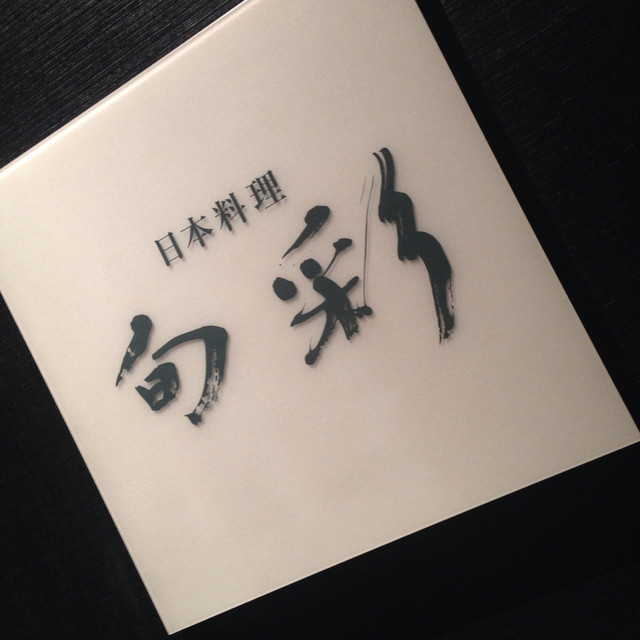 日本料理
旬彩